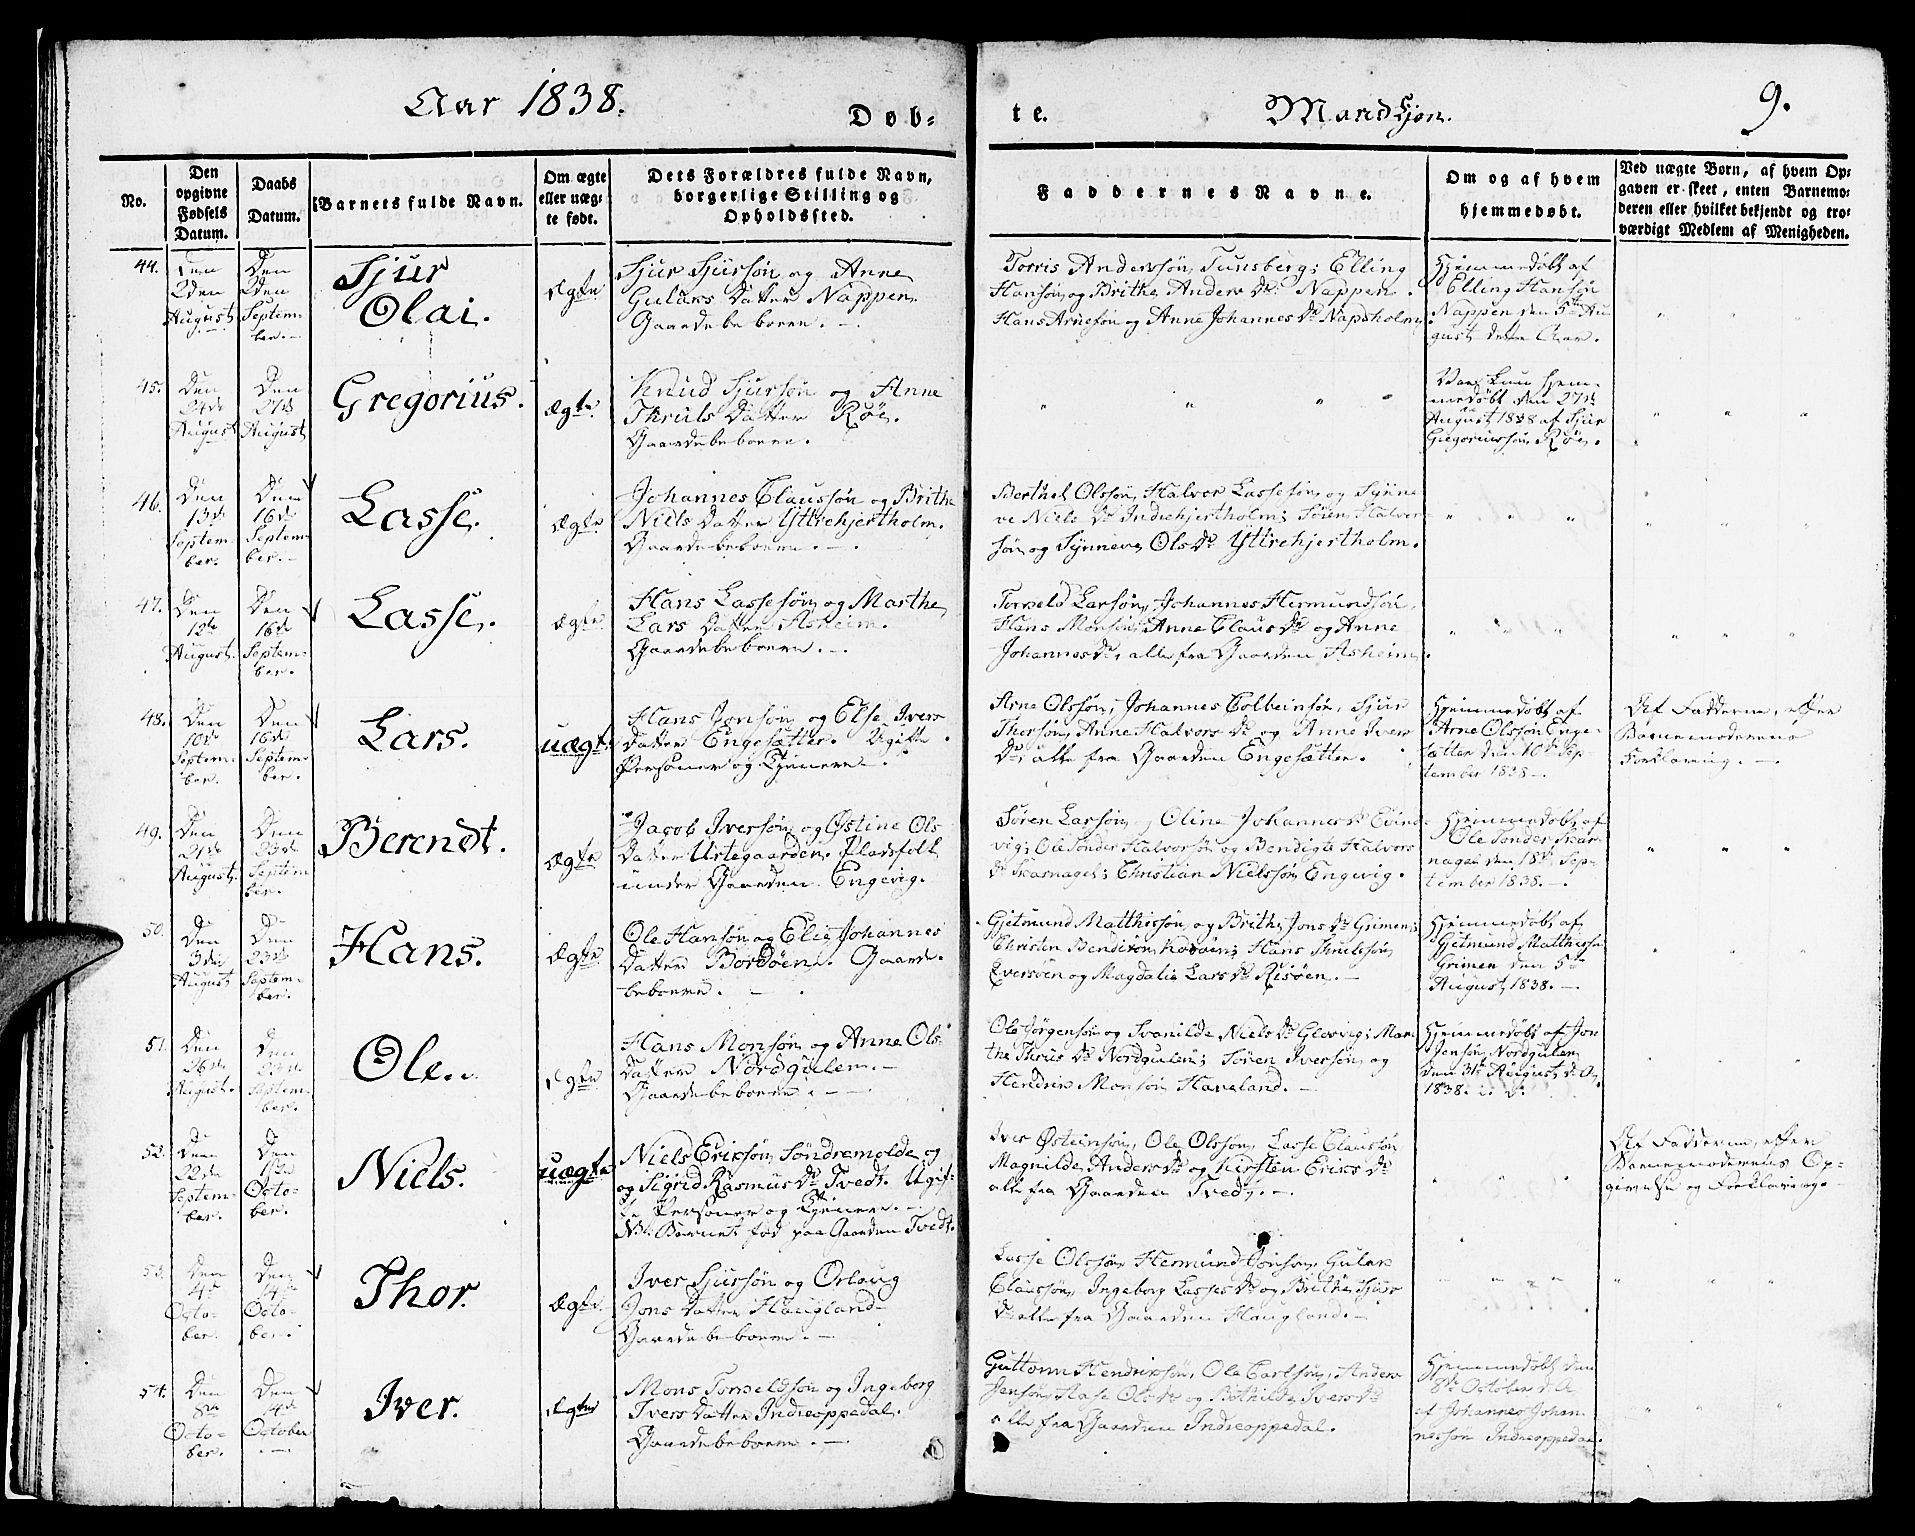 Aar 1838.
Døb-
te.
Mandkjøn.
9.
No.
Den
opgivne
Fødsels
Datum.
Daabs
Datum.
Barnets fulde Navn.
Om ægte
eller uæg-
te født.
Dets Forældres fulde Navn,
borgerlige Stilling og
Opholdssted.
Faddernes Navne.
Om og af hvem
hjemmedøbt.
Ved uægte Børn, af hvem Op-
gaven er skeet, enten Barnemo-
deren eller hvilket bekjendt og tro-
værdigt Medlem af Menigheden.
44.
Den
2den
August
Den
2den
Septem-
ber.
Sjur
Olai.
Ægte
Sjur Sjursøn og Anne
Gulaks Datter Nappen.
Gaardebeboere.
Torris Andersøn, Tunsberg; Elling
Hansøn og Brithe Anders Dr Nappen.
Hans Arnesøn og Anne Johannes Dr Napsholm.
Hjemmedøbt af
Elling Hansøn
Nappen den 5te Au-
gust dette Aar.
45.
Den
24de
August
Den
27de
August
Gregorius.
Ægte.
Knud Sjursøn og Anne
Thruls Datter Røe.
Gaardebeboere.
Var kun hjem-
medøbt den 27de
August 1838 af Sjur
Gregoriussøn Røe.
46.
Den
13de
Septem-
ber.
Den
16de
Septem-
ber.
Lasse.
Ægte
Johannes Claussøn og Brithe
Niels Datter Yttrehjertholm.
Gaardebeboere.
Berthel Olssøn, Halvor Lassesøn og Synne-
ve Niels Dr Indrehjertholm; Søren Halvor-
søn og Synneve Ols Dr Yttrehjertholm.
47.
Den
12te
August.
Den
16de
Septem-
ber.
Lasse.
Ægte
Hans Lassesøn og Marthe
Lars Datter Asheim.
Gaardebeboere.
Torneld Larsøn, Johannes Hermundsøn,
Hans Monsøn, Anne Claus Dr og Anne
Johannes Dr, alle fra Gaarden Asheim.
48.
Den
10de
Septem-
ber.
Den
16de
Septem-
ber.
Lars.
uægte
Hans Jonsøn og Else Ivers
Datter Engesætter. Ugifte
Personer og Tjenere.
Arne Olssøn; Johannes Colbeinsøn, Sjur
Thorsøn, Anne Halvors Dr og Anne Ivers
Dr; alle fra Gaarden Engesætter.
Hjemmedøbt af
Arne Olssøn Enge-
sætter den 10de Sep-
tember 1838.
Af Fadderne, efter
Barnemoderens
Forklaring.
49.
Den
21de
August.
Den
23de
Septem-
ber.
Berendt.
Ægte
Jacob Iversøn og Østine Ols
Datter Urtegaarden. Pladsfolk
under Gaarden Engevig.
Søren Larsøn og Oline Johannes Dr Eind-
vig; Ole Tonder Halvorsøn og Bendigte Halvors
Dr Skarnagel; Christian Nielssøn Engevig.
Hjemmedøbt af
Ole Tonder Skar-
nagel den 18de Sep-
tember 1838.
50.
Den
3die
August
Den
23de
Septem-
ber.
Hans.
Ægte
Ole Hansøn og Elie Johannes
Datter Bordøen. Gaard-
beboere.
Gjetmund Matthissøn og Brithe Jons Dr Grimen;
Christen Bendixen; Hans Thrulssøn
Eversøen og Magdalie Lars Dr Risøen.
Hjemmedøbt af
Gjetmund Matthissøn
Grimen den 5te
August 1838.
51.
Den
26de
August.
Den
23de
Septem-
ber.
Ole.
Ægte
Hans Monsøn og Anne Ols
Datter Nordgulen.
Gaardebeboere.
Ole Jørgensøn og Svanilde Niels Dr Glosvig; Mar-
the Thrus Dr Nordgulen; Søren Iversøn og
Hendrik Monsøn Haveland.
Hjemmedøbt af Jon
Jensøn Nordgulen
den 31te August d. A.
1838.
52.
Den
22de
Septem-
ber.
Den
1ste
Octo-
ber.
Niels.
uægte
Niels Eriksøn Søndremolde og
og Sigrid Rasmus Dr Tvedt. Ugif-
te Personer og Tjenere.
NB. Barnet fød paa Gaarden Tvedt.
Iver Østeinsøn, Ole Olssøn, Lasse Clausøn
Magnilde Anders Dr og Kirsten Eriks Dr
alle fra Gaarden Tvedt.
Af Fadderne, efter
Barnemoderens Op-
givelse og Forklaring.
53.
Den
4de
Octo-
ber.
Den
14de
Octo-
ber.
Thor.
Ægte.
Iver Sjursøn og Orloug
Jons Datter Haugland-
Gaardebeboere.
Lasse Olssøn, Hermund Jonsøn, Gulak
Claussøn, Ingeborg Lasses Dr og Brithe Sjurs
Dr alle fra Gaarden Haugland.
54.
Den
8de
Octo-
ber.
Den
14de
October
Iver.
Ægte
Mons Torneldsøn og Ingeborg
Ivers Datter Indreoppedal.
Gaardebeboere.
Guttorm Hendriksøn, Ole Carlsøn, Anders
Jensøn, Aase Ols Dr og Bothilde Ivers Dr
alle fra Gaarden Indreoppedal.
Hjemmedøbt den
8de October d. A.
af Johannes Johan-
nessøn Indreoppedal.